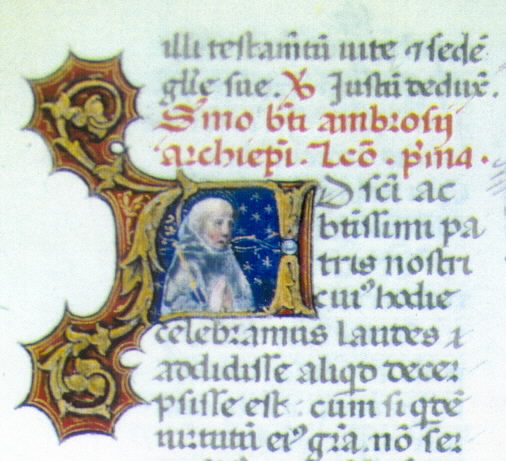 illi testam̃tũ uite ⁊ sedẽ
gl̃ie sue. ℟ Justũ deduẋ.
Smo b̃ti ambrosij
archiep̃i. Lcõ. p̃ma.
AD sc̃i ac
btissimi pa
tris nostri
cuiꝰ hodie
celebramus laudes ⁊
addidisse aliqd decer
psisse est: cum si qdẽ
uirtutũ eiꝰ gr̃a. nõ ser